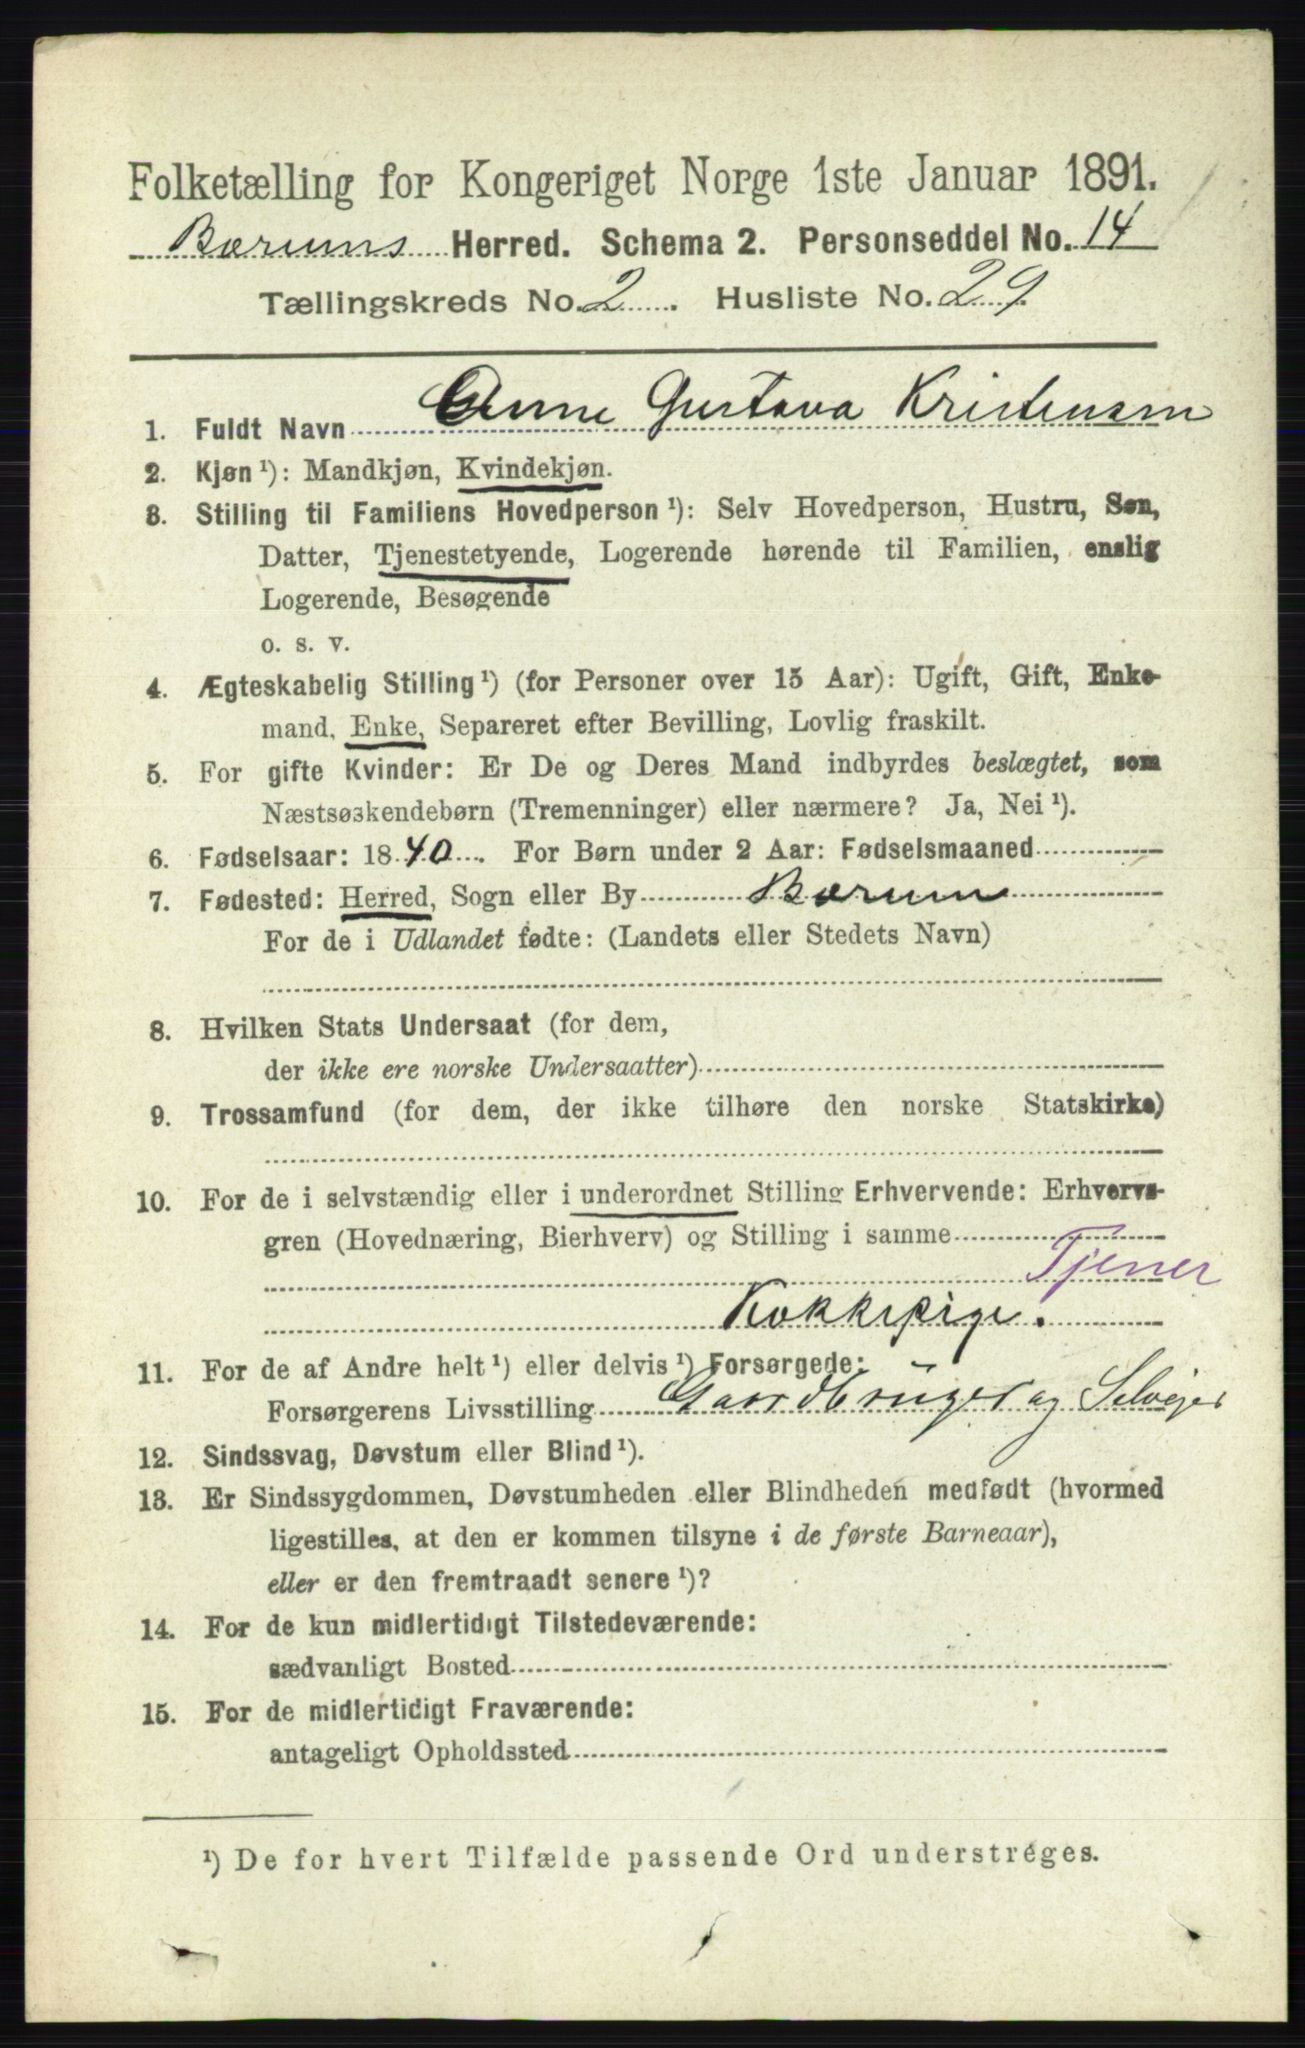 Folketælling for Kongeriget Norge 1ste Januar 1891.
Bærums Herred. Schema 2. Personseddel No. 14
Tællingskreds No. 2. Husliste No. 29
1. Fuldt Navn Anne Gustava Kristensen
2. Kjøn ¹): Mandkjøn, Kvindekjøn.
3. Stilling til Familiens Hovedperson ¹): Selv Hovedperson, Hustru, Søn,
Datter, Tjenestetyende, Logerende hørende til Familien, enslig
Logerende, Besøgende
o. s. v.
4. Ægteskabelig Stilling ¹) (for Personer over 15 Aar): Ugift, Gift, Enke-
mand, Enke, Separeret efter Bevilling, Lovlig fraskilt.
5. For gifte Kvinder: Er De og Deres Mand indbyrdes beslægtet, som
Næstsøskendebørn (Tremenninger) eller nærmere? Ja, Nei ¹).
6. Fødselsaar: 1840. For Børn under 2 Aar: Fødselsmaaned
7. Fødested: Herred, Sogn eller By Bærum
For de i Udlandet fødte: (Landets eller Stedets Navn)
8. Hvilken Stats Undersaat (for dem,
der ikke ere norske Undersaatter)
9. Trossamfund (for dem, der ikke tilhøre den norske Statskirke)
10. For de i selvstændig eller i underordnet Stilling Erhvervende: Erhvervs-
gren (Hovednæring, Bierhverv) og Stilling i samme
Tjener
Kokkepige.
11. For de af Andre helt ¹) eller delvis ¹) Forsørgede:
Forsørgerens Livsstilling Gaardbruger og Selveier
12. Sindssvag, Døvstum eller Blind ¹).
13. Er Sindssygdommen, Døvstumheden eller Blindheden medfødt (hvormed
ligestilles, at den er kommen tilsyne i de første Barneaar),
eller er den fremtraadt senere ¹)?
14. For de kun midlertidigt Tilstedeværende:
sædvanligt Bosted
15. For de midlertidigt Fraværende:
antageligt Opholdssted
¹) De for hvert Tilfælde passende Ord understreges.